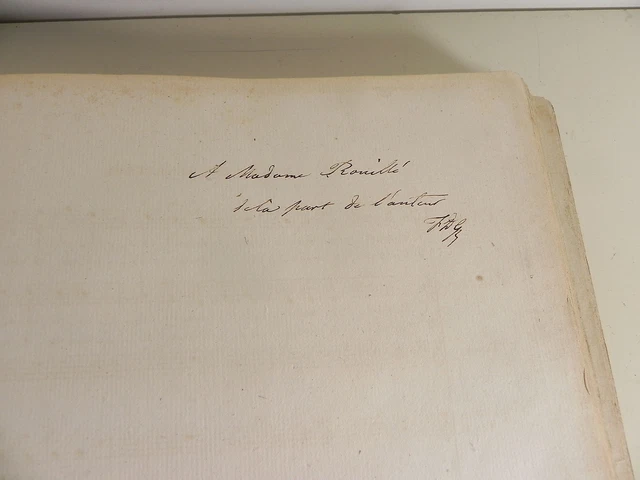 A Madame Rouillé
de la part de l'auteur